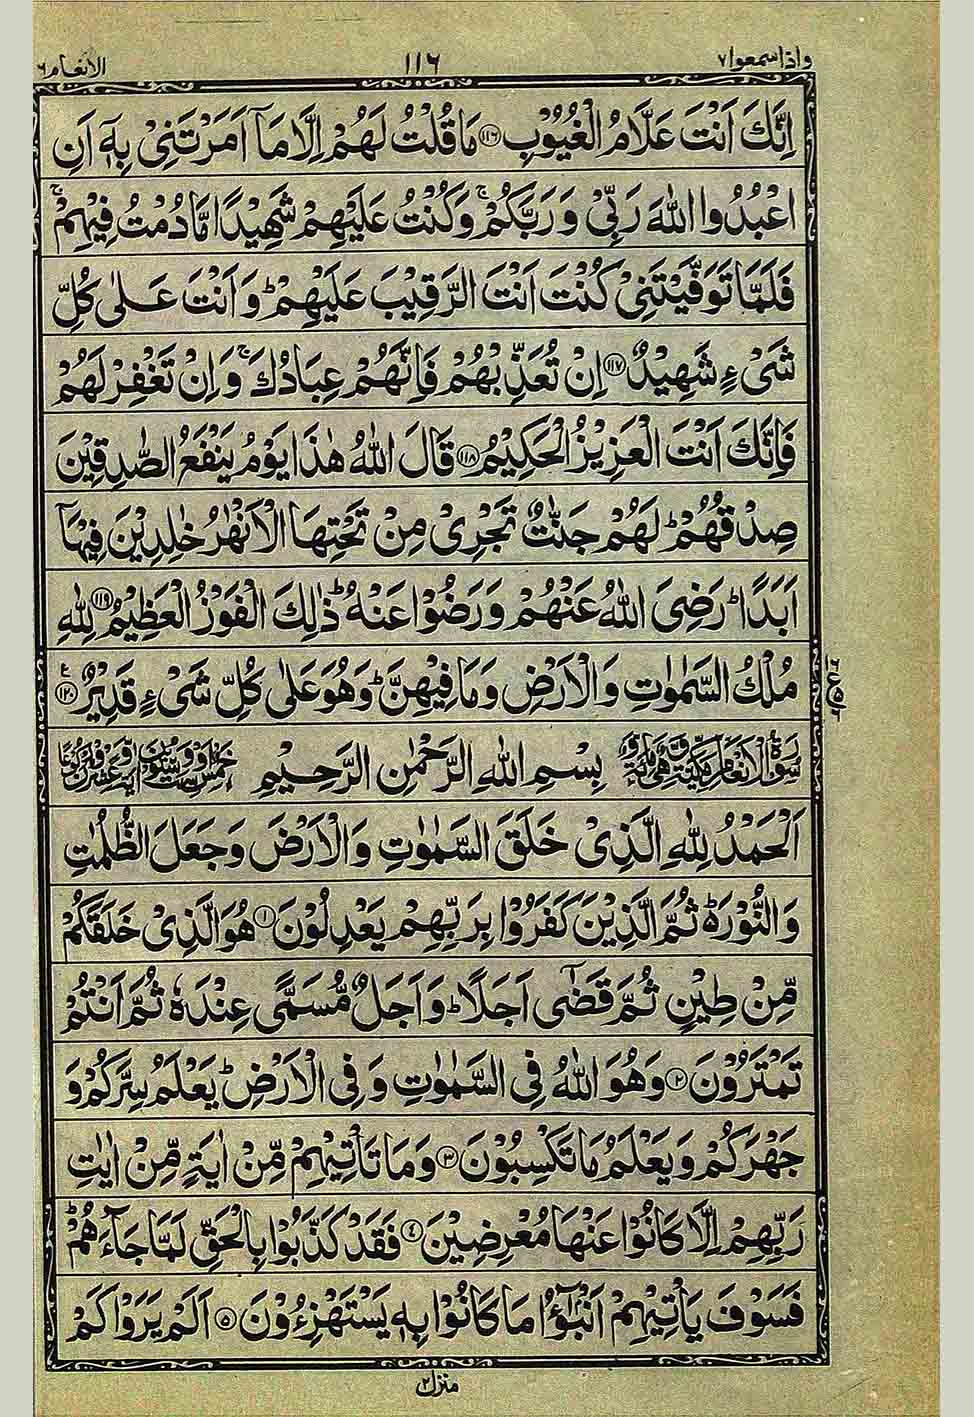 واذاسمعوا۷
۱۱۶
الانعام۶
اِنَّكَ اَنْتَ عَلَّامُ الْغُيُوْبِ ۝۱۱۶ مَا قُلْتُ لَهُمْ اِلَّا مَاۤ اَمَرْتَنِیْ بِهٖۤ اَنِ
اعْبُدُوا اللّٰهَ رَبِّیْ وَ رَبَّكُمْ ۚ وَكُنْتُ عَلَيْهِمْ شَهِيْدًا مَّا دُمْتُ فِيْهِمْ ۚ
فَلَمَّا تَوَفَّيْتَنِیْ كُنْتَ اَنْتَ الرَّقِيْبَ عَلَيْهِمْ ؕ وَ اَنْتَ عَلٰی كُلِّ
شَیْءٍ شَهِيْدٌ ۝۱۱۷ اِنْ تُعَذِّبْهُمْ فَاِنَّهُمْ عِبَادُكَ ۚ وَ اِنْ تَغْفِرْ لَهُمْ
فَاِنَّكَ اَنْتَ الْعَزِيْزُ الْحَكِيْمُ ۝۱۱۸ قَالَ اللّٰهُ هٰذَا يَوْمُ يَنْفَعُ الصّٰدِقِيْنَ
صِدْقُهُمْ ؕ لَهُمْ جَنّٰتٌ تَجْرِیْ مِنْ تَحْتِهَا الْاَنْهٰرُ خٰلِدِيْنَ فِيْهَاۤ
اَبَدًا ؕ رَضِیَ اللّٰهُ عَنْهُمْ وَ رَضُوْا عَنْهُ ؕ ذٰلِكَ الْفَوْزُ الْعَظِيْمُ ۝۱۱۹ لِلّٰهِ
مُلْكُ السَّمٰوٰتِ وَ الْاَرْضِ وَ مَا فِيْهِنَّ ؕ وَهُوَ عَلٰی كُلِّ شَیْءٍ قَدِيْرٌ ۝۱۲۰ ع
سُوْرَةُ الْاَنْعَامِ مَكِّيَّةٌ بِسْمِ اللّٰهِ الرَّحْمٰنِ الرَّحِيْمِ
اَلْحَمْدُ لِلّٰهِ الَّذِیْ خَلَقَ السَّمٰوٰتِ وَ الْاَرْضَ وَ جَعَلَ الظُّلُمٰتِ
وَ النُّوْرَ ؕ۬ ثُمَّ الَّذِيْنَ كَفَرُوْا بِرَبِّهِمْ يَعْدِلُوْنَ ۝۱ هُوَ الَّذِیْ خَلَقَكُمْ
مِّنْ طِيْنٍ ثُمَّ قَضٰۤی اَجَلًا ؕ وَ اَجَلٌ مُّسَمًّی عِنْدَهٗ ثُمَّ اَنْتُمْ
تَمْتَرُوْنَ ۝۲ وَهُوَ اللّٰهُ فِی السَّمٰوٰتِ وَ فِی الْاَرْضِ ؕ يَعْلَمُ سِرَّكُمْ وَ
جَهْرَكُمْ وَ يَعْلَمُ مَا تَكْسِبُوْنَ ۝۳ وَ مَا تَاْتِيْهِمْ مِّنْ اٰيَةٍ مِّنْ اٰيٰتِ
رَبِّهِمْ اِلَّا كَانُوْا عَنْهَا مُعْرِضِيْنَ ۝۴ فَقَدْ كَذَّبُوْا بِالْحَقِّ لَمَّا جَآءَهُمْ ؕ
فَسَوْفَ يَاْتِيْهِمْ اَنْۢبٰٓؤُا مَا كَانُوْا بِهٖ يَسْتَهْزِءُوْنَ ۝۵ اَلَمْ يَرَوْا كَمْ
منزل۲